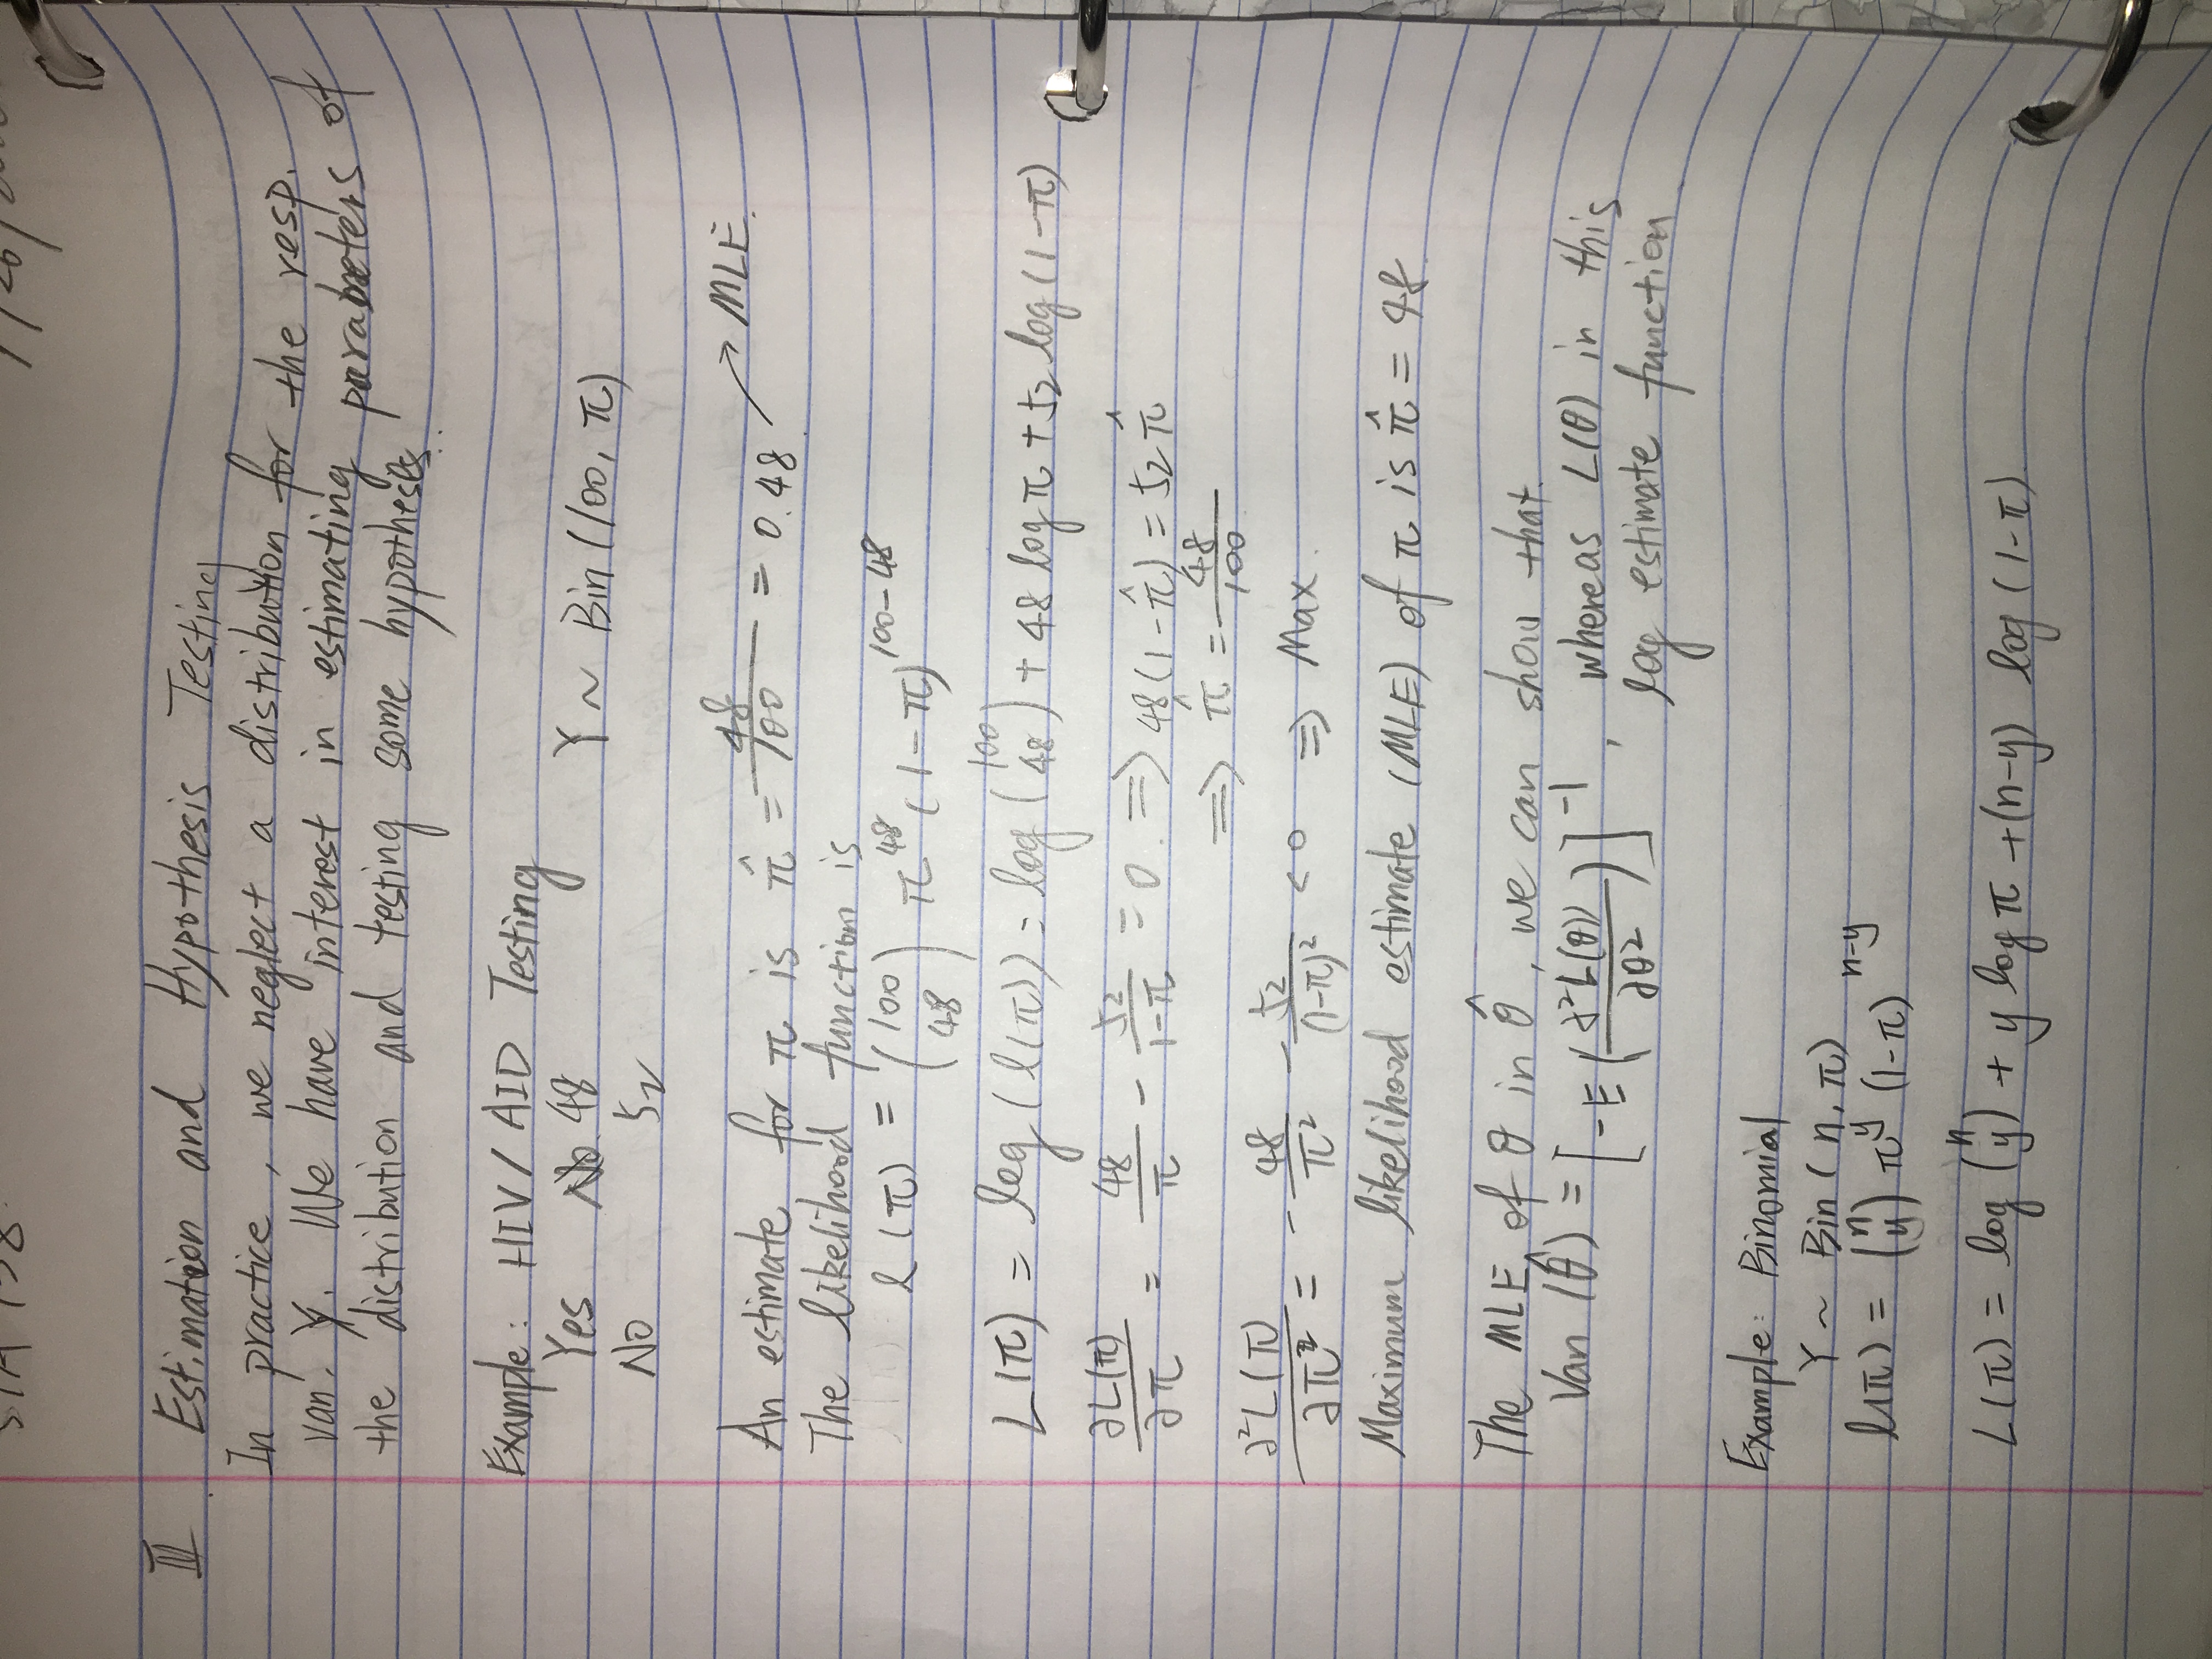 STA 138
III. Estimation and Hypothesis Testing
In practice, we neglect a distribution for the resp.
van. Y. We have interest in estimating parameters of
the distribution and testing some hypotheses.
Example: HIV/AID Testing
Yes 48 Y ~ Bin(100, π)
No 52
An estimate for π is π̂ = 48/100 = 0.48. → MLE.
The likelihood function is
l(π) = (100 48) π^48 (1-π)^100-48
L(π) = log(l(π)) = log(100 48) + 48 log π + 52 log(1-π)
∂L(π)/∂π = 48/π - 52/1-π = 0. ⇒ 48(1-π̂) = 52π̂
⇒ π̂ = 48/100
∂²L(π)/∂π² = -48/π² - 52/(1-π)² < 0 ⇒ Max.
Maximum likelihood estimate (MLE) of π is π̂ = 48.
The MLE of θ in θ̂, we can show that.
Van(θ̂) = [-E(∂²L(θ)/∂θ²)]^-1, whereas L(θ) in this
log estimate function
Example: Binomial
Y ~ Bin(n, π)
l(π) = (n y) π^y (1-π)^n-y
L(π) = log(n y) + y log π + (n-y) log(1-π)